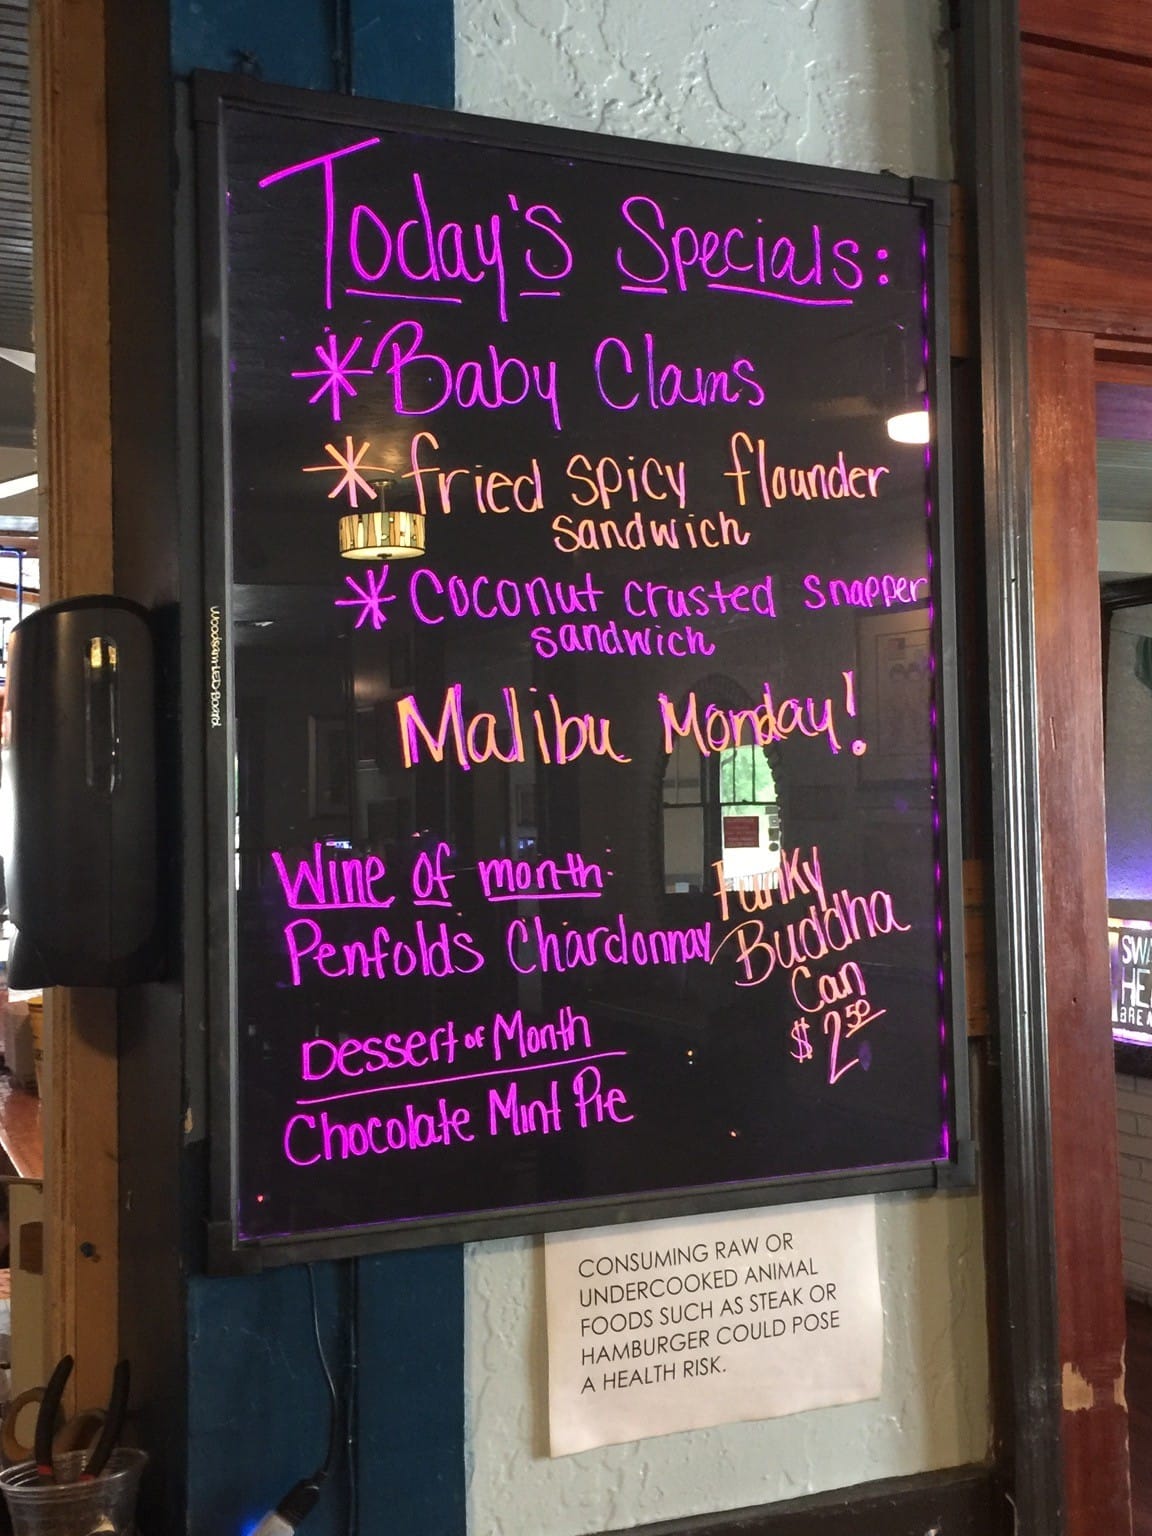 Today's Specials:
* Baby Clams
* fried spicy flounder
sandwich
* Coconut crusted snapper
sandwich
Malibu Monday!
Wine of month:
Penfolds Chardonnay
Funky
Buddha
Can
$2.50
Dessert of Month
Chocolate Mint Pie
woodsam LED Board
CONSUMING RAW OR
UNDERCOOKED ANIMAL
FOODS SUCH AS STEAK OR
HAMBURGER COULD POSE
A HEALTH RISK.